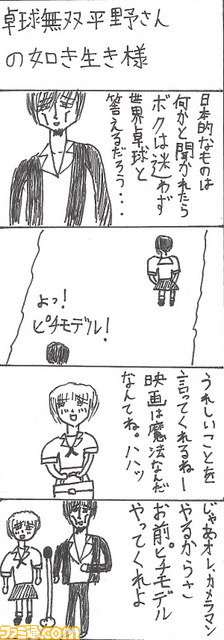 卓球無双平野さん
の如き生き様
日本的なものは
何かと聞かれたら
ボクは迷わず
世界卓球と
答えるだろう・・・
よっ！
ピチモデル！
うれしいことを
言ってくれるねー
映画は魔法なんだ
なんてね。ハハッ
じゃあオレ、カメラマン
やるからさ
お前。ピチモデル
やってくれよ
ファミ通.com